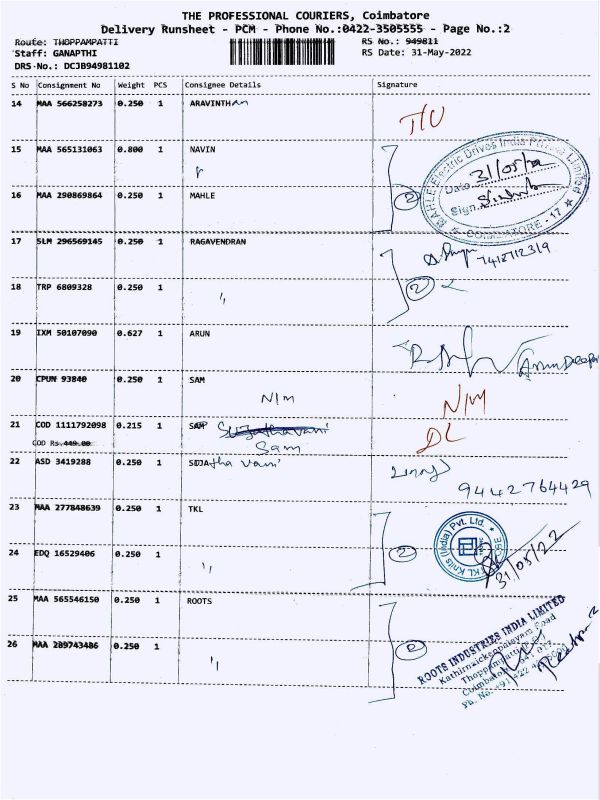 THE PROFESSIONAL COURIERS, Coimbatore
Delivery Runsheet - PCM - Phone No.:0422-3505555 - Page No.:2
Route: THOPPAMPATTI RS No.: 949811
Staff: GANAPTHI RS Date: 31-May-2022
DRS No.: DCJB94981102
S No Consignment No Weight PCS Consignee Details Signature
14 MAA 566258273 0.250 1 ARAVINTHAN
15 MAA 565131063 0.800 1 NAVIN
MAHLE Electric Drives India Private Limited
Date 31/05/22
Sign
COIMBATORE - 17
16 MAA 290869864 0.250 1 MAHLE 2
17 SLM 296569145 0.250 1 RAGAVENDRAN
7418712319
18 TRP 6809328 0.250 1 〃 2
19 IXM 50107090 0.627 1 ARUN
20 CPUN 93840 0.250 1 SAM
N/M N/M
21 COD 1111792098 0.215 1 SAM Sujathavani DL
COD Rs.449.00 Sam
22 ASD 3419288 0.250 1 SUJAtha vani
9442764429
23 MAA 277848639 0.250 1 TKL
TKL Knits (India) Pvt. Ltd.
24 EDQ 16529406 0.250 1 〃 2 31/05/22
25 MAA 565546150 0.250 1 ROOTS
ROOTS INDUSTRIES INDIA LIMITED
Kathirnaickenpalayam Road
Thoppampatti
Coimbatore 641 017
Ph. No. +91 422
26 MAA 289743486 0.250 1 〃 2